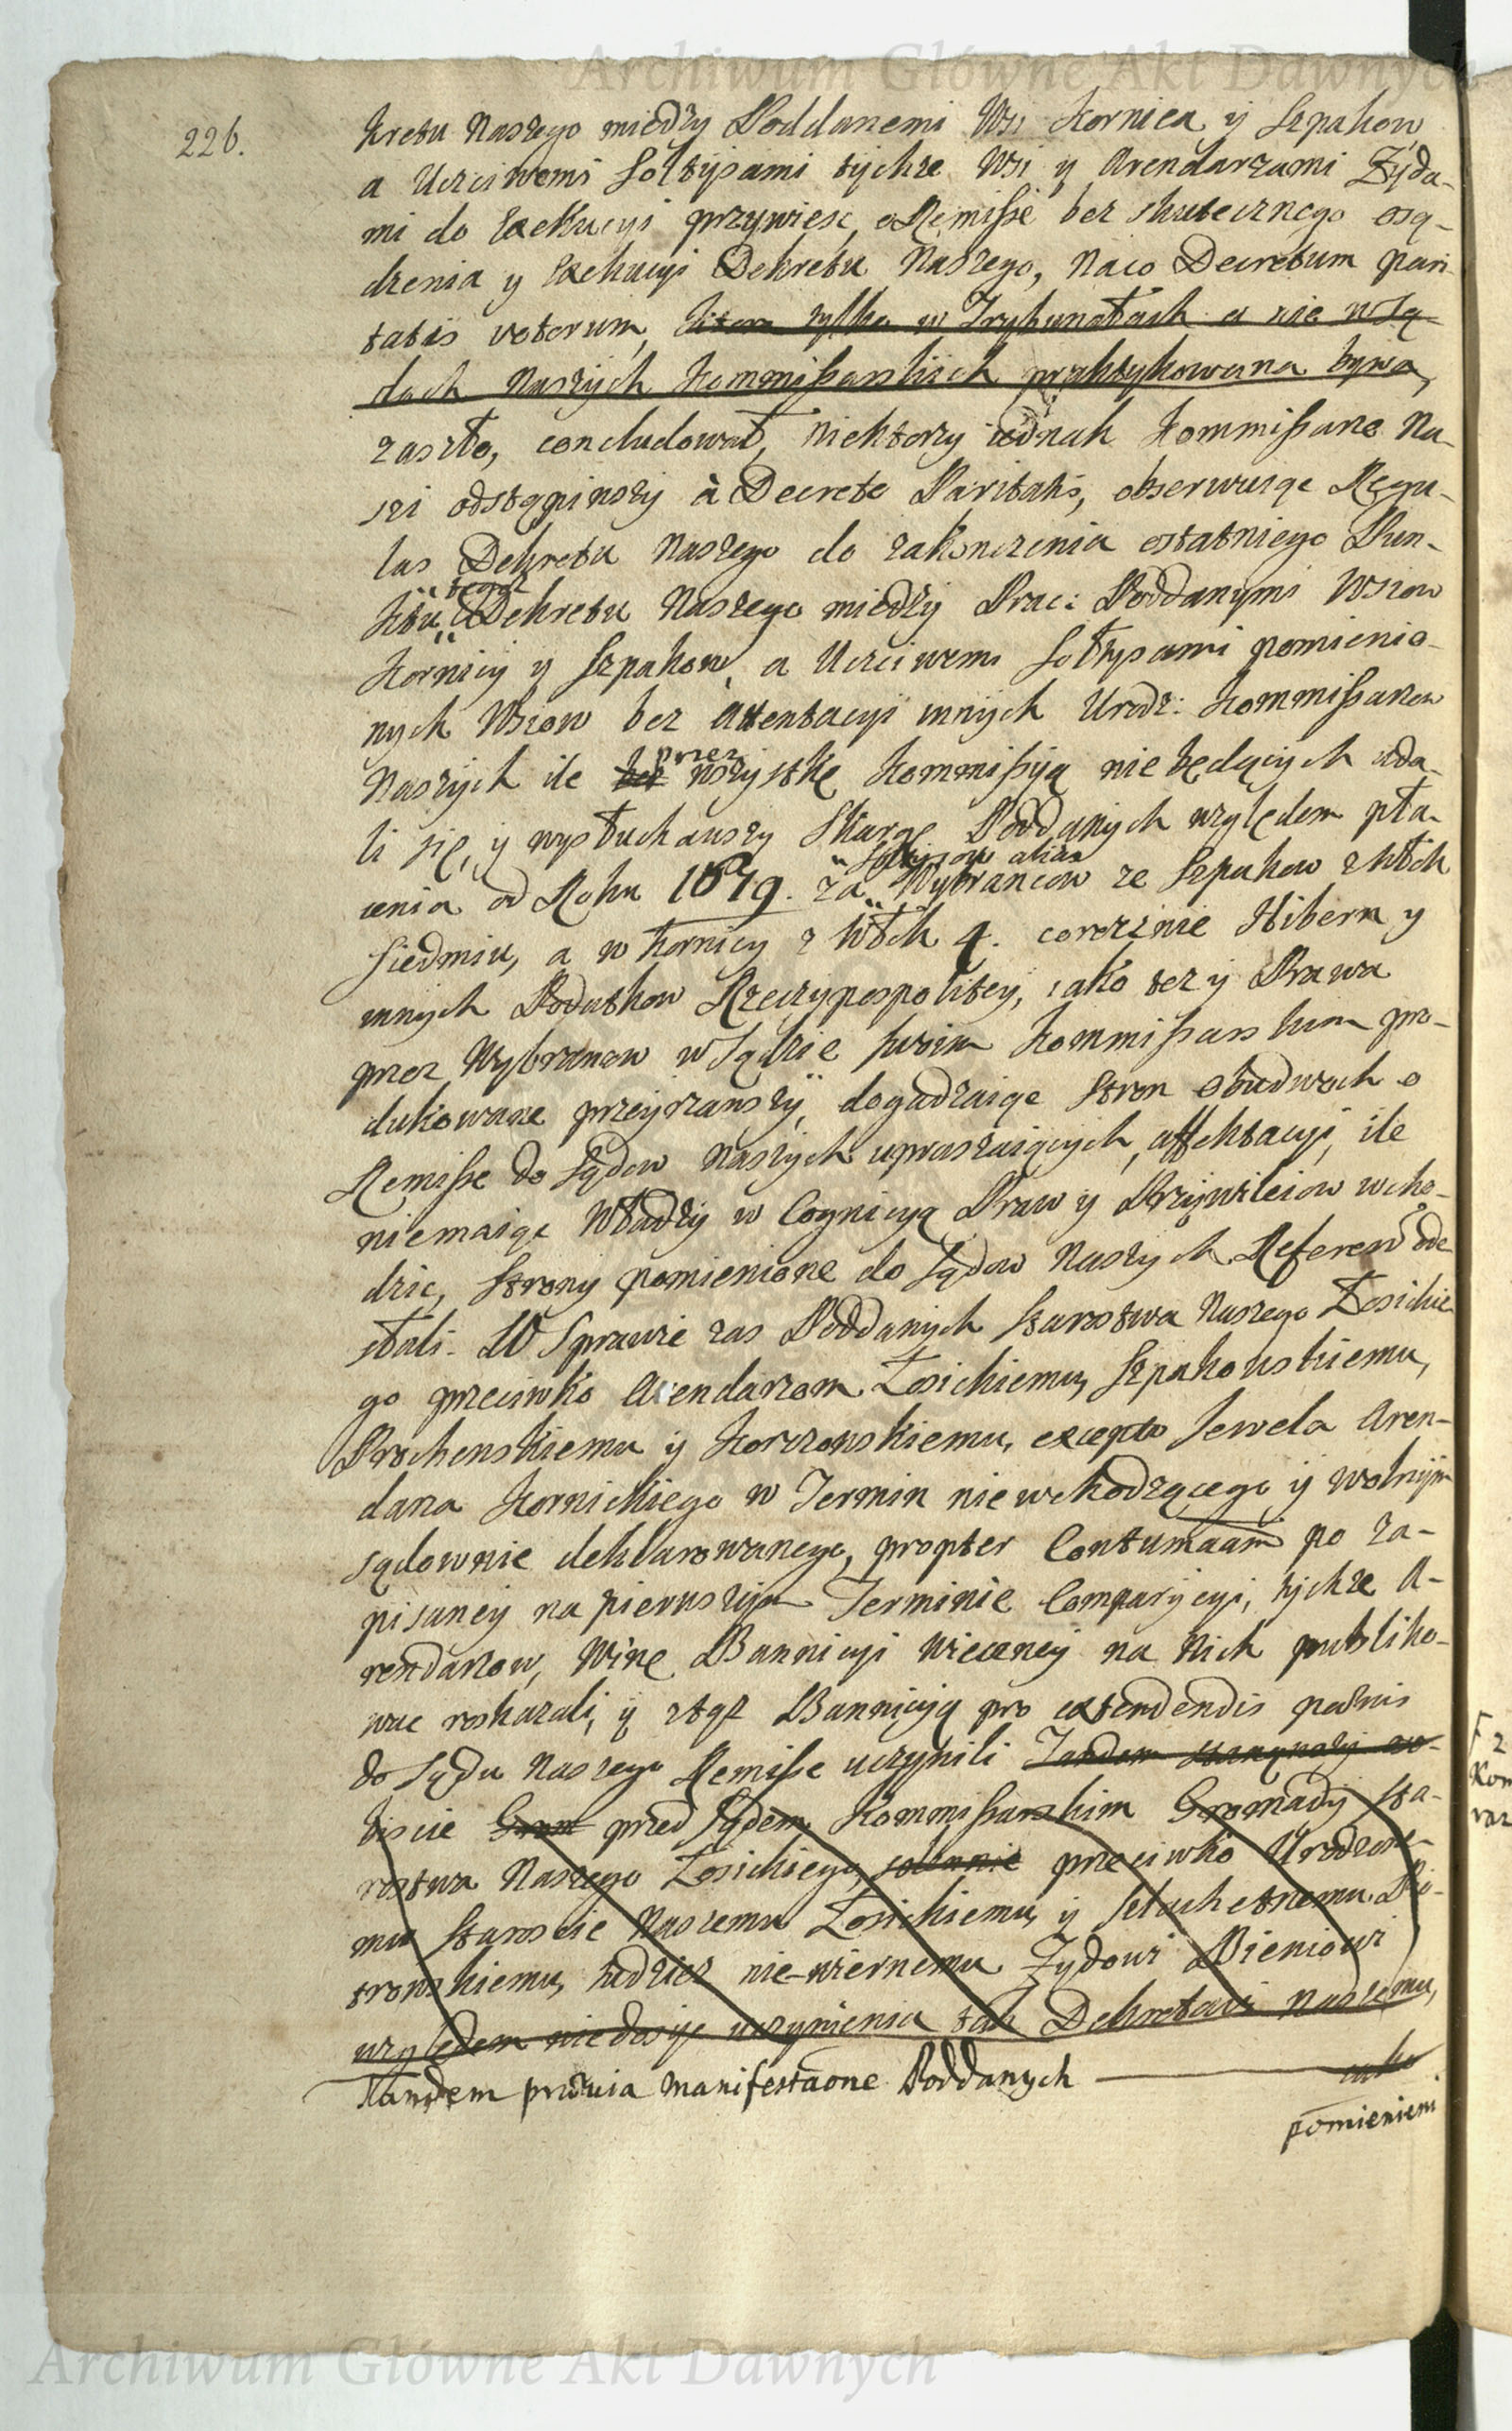 Archiwum Główne Akt Dawnych
226.
kretu Naszego między Poddanemi Wsi Kornica y Szpakow
a Uczciwemi Sołtysami tychże Wsi y Arendarzami Żyda-
mi do Exekucyi przywieść, o Remissę bez skutecznego osą-
dzenia y Exekucyi Dekretu Naszego, Naco Decretum pari-
tatis votorum, ktore tylko w Trybunałach a nie w Są-
dach Naszych Kommissarskich praktykowana bywa,
zaszło, concludował, niektorzy iednak Kommissarze Na-
szi odstąpiwszy à Decreto Paritatis, obserwuiąc Regu-
łas Dekretu Naszego do zakończenia ostatniego Pun-
tegoż
ktu Dekretu Naszego między Prac: Poddanymi Wsiow
Kornicy y Szpakow, a Uczciwemi Sołtysami pomienio-
nych Wsiow bez attentacyi innych Urodz: Kommissarzow
przez
Naszych ile bez wszystkę Kommissyą nie będących uda-
li się, y wysłuchawszy Skargę Poddanych względem pła-
Sołtysow alias
cenia od Roku 1679. za Wybrancow ze Szpakow z Włok
siedmiu, a w Kornicy z Włok 4. corocznie Hibern y
innych Podatkow Rzeczypospolitey, iako też y Prawa
przez Wybrancow w Sądzie swoim Kommissarskim pro-
dukowane przeyrzawszy, dogadzaiąc stron obudwoch o
Remissę do Sądow Naszych upraszaiących, affektacyi, ile
niemaiąc Władzy w Cognicyą Praw y Przywileiow wcho-
dzic, strony pomienione do Sądow Naszych Referen: ode-
słali. W Sprawie zas Poddanych Starostwa Naszego Łosickie-
go przeciwko Arendarzom Łosickiemu, Szpakowskiemu,
Prochenskiemu y Korczowskiemu, excepto Jewela Aren-
darza Kornickiego w Termin niewchodzącego y wolnym
sądownie deklarowanego, propter Contumaciam po za-
pisaney na pierwszym Terminie Comparycyi, tychże A-
rendarzow, Winę Bannicyi wieczney na nich publiko-
wac roskazali, y ztąż Bannicyą pro extendendis paenis
do Sądu Naszego Remissę uczynili Tandem stanąwszy oo-
biscie Grom przed Sądem Kommissarskim Gromady Sta-
rostwa Naszego Łosickiego, solennie przeciwko Urodzone-
mu Staroscie Naszemu Łosickiemu, y Szlachetnemu Pio-
trowskiemu, tudziez nie-wiernemu Żydowi Bieniowi
względem niedosyc uczynienia tak Dekretowi Naszemu,
iako
Tandem prævia manifestaone Poddanych
pomieniem
Archiwum Główne Akt Dawnych